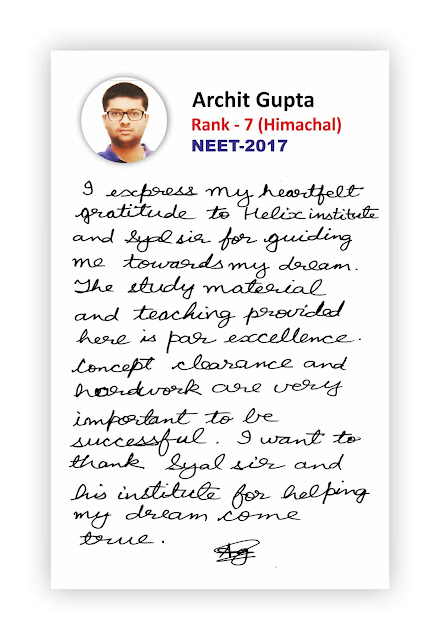 Archit Gupta
Rank - 7 (Himachal)
NEET-2017
I express my heartfelt
gratitude to Helix institute
and Syal sir for guiding
me towards my dream.
The study material
and teaching provided
here is par excellence.
Concept clearance and
hardwork are very
important to be
successful. I want to
thank Syal sir and
his institute for helping
my dream come
true.
Ag